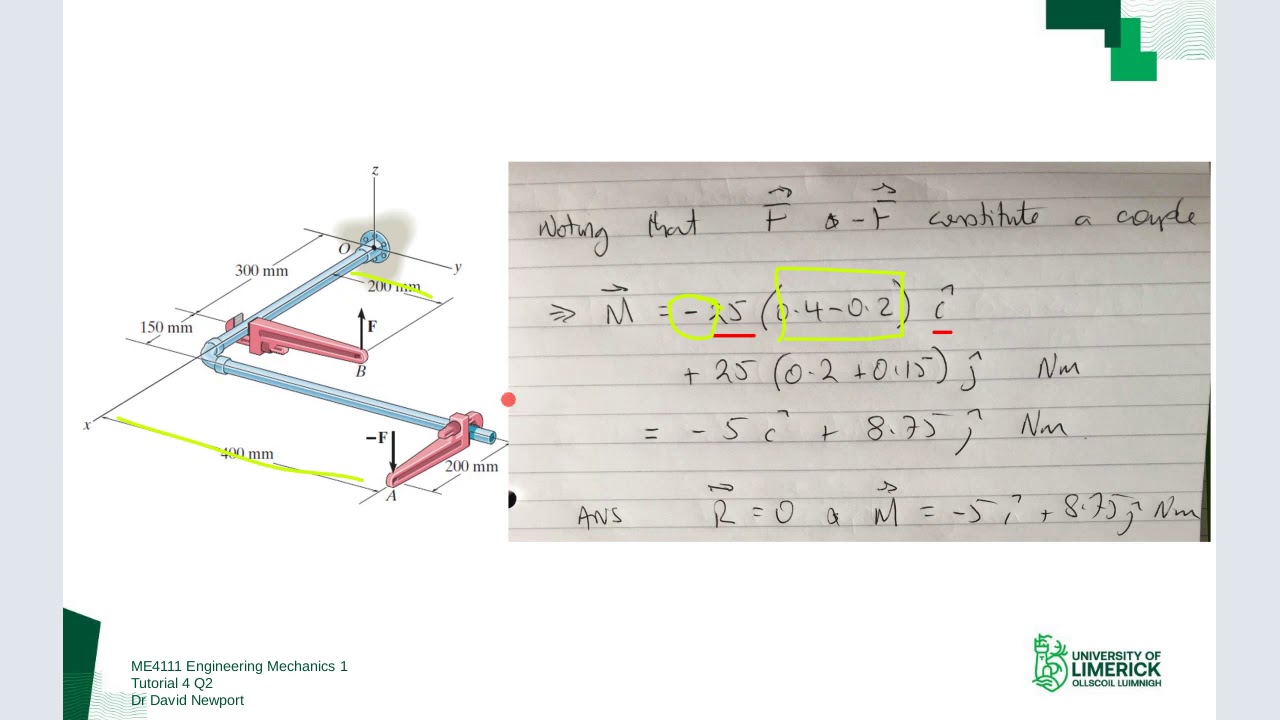 z
O
y
300 mm
200 mm
150 mm
F
B
x
400 mm
−F
200 mm
A
Noting that F & -F constitute a couple
⇒ M = -25 (0.4-0.2) î
+ 25 (0.2 +0.15) ĵ Nm
= - 5 î + 8.75 ĵ Nm
ANS R = 0 & M = -5 î + 8.75 ĵ Nm
ME4111 Engineering Mechanics 1
Tutorial 4 Q2
Dr David Newport
UNIVERSITY OF
LIMERICK
OLLSCOIL LUIMNIGH